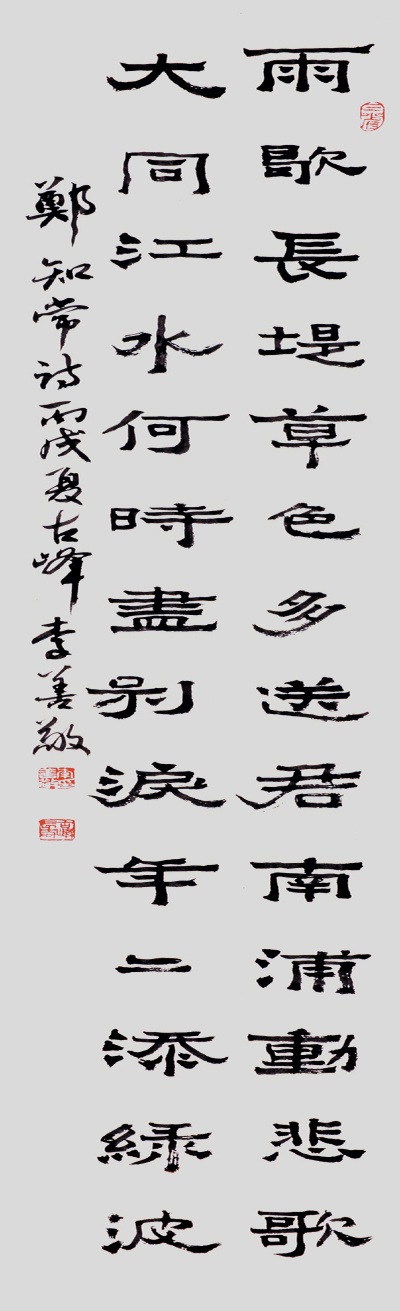 雨歇長堤草色多送君南浦動悲歌
大同江水何時盡別淚年二添綠波
鄭知常詩丙戌夏古峰李善敬